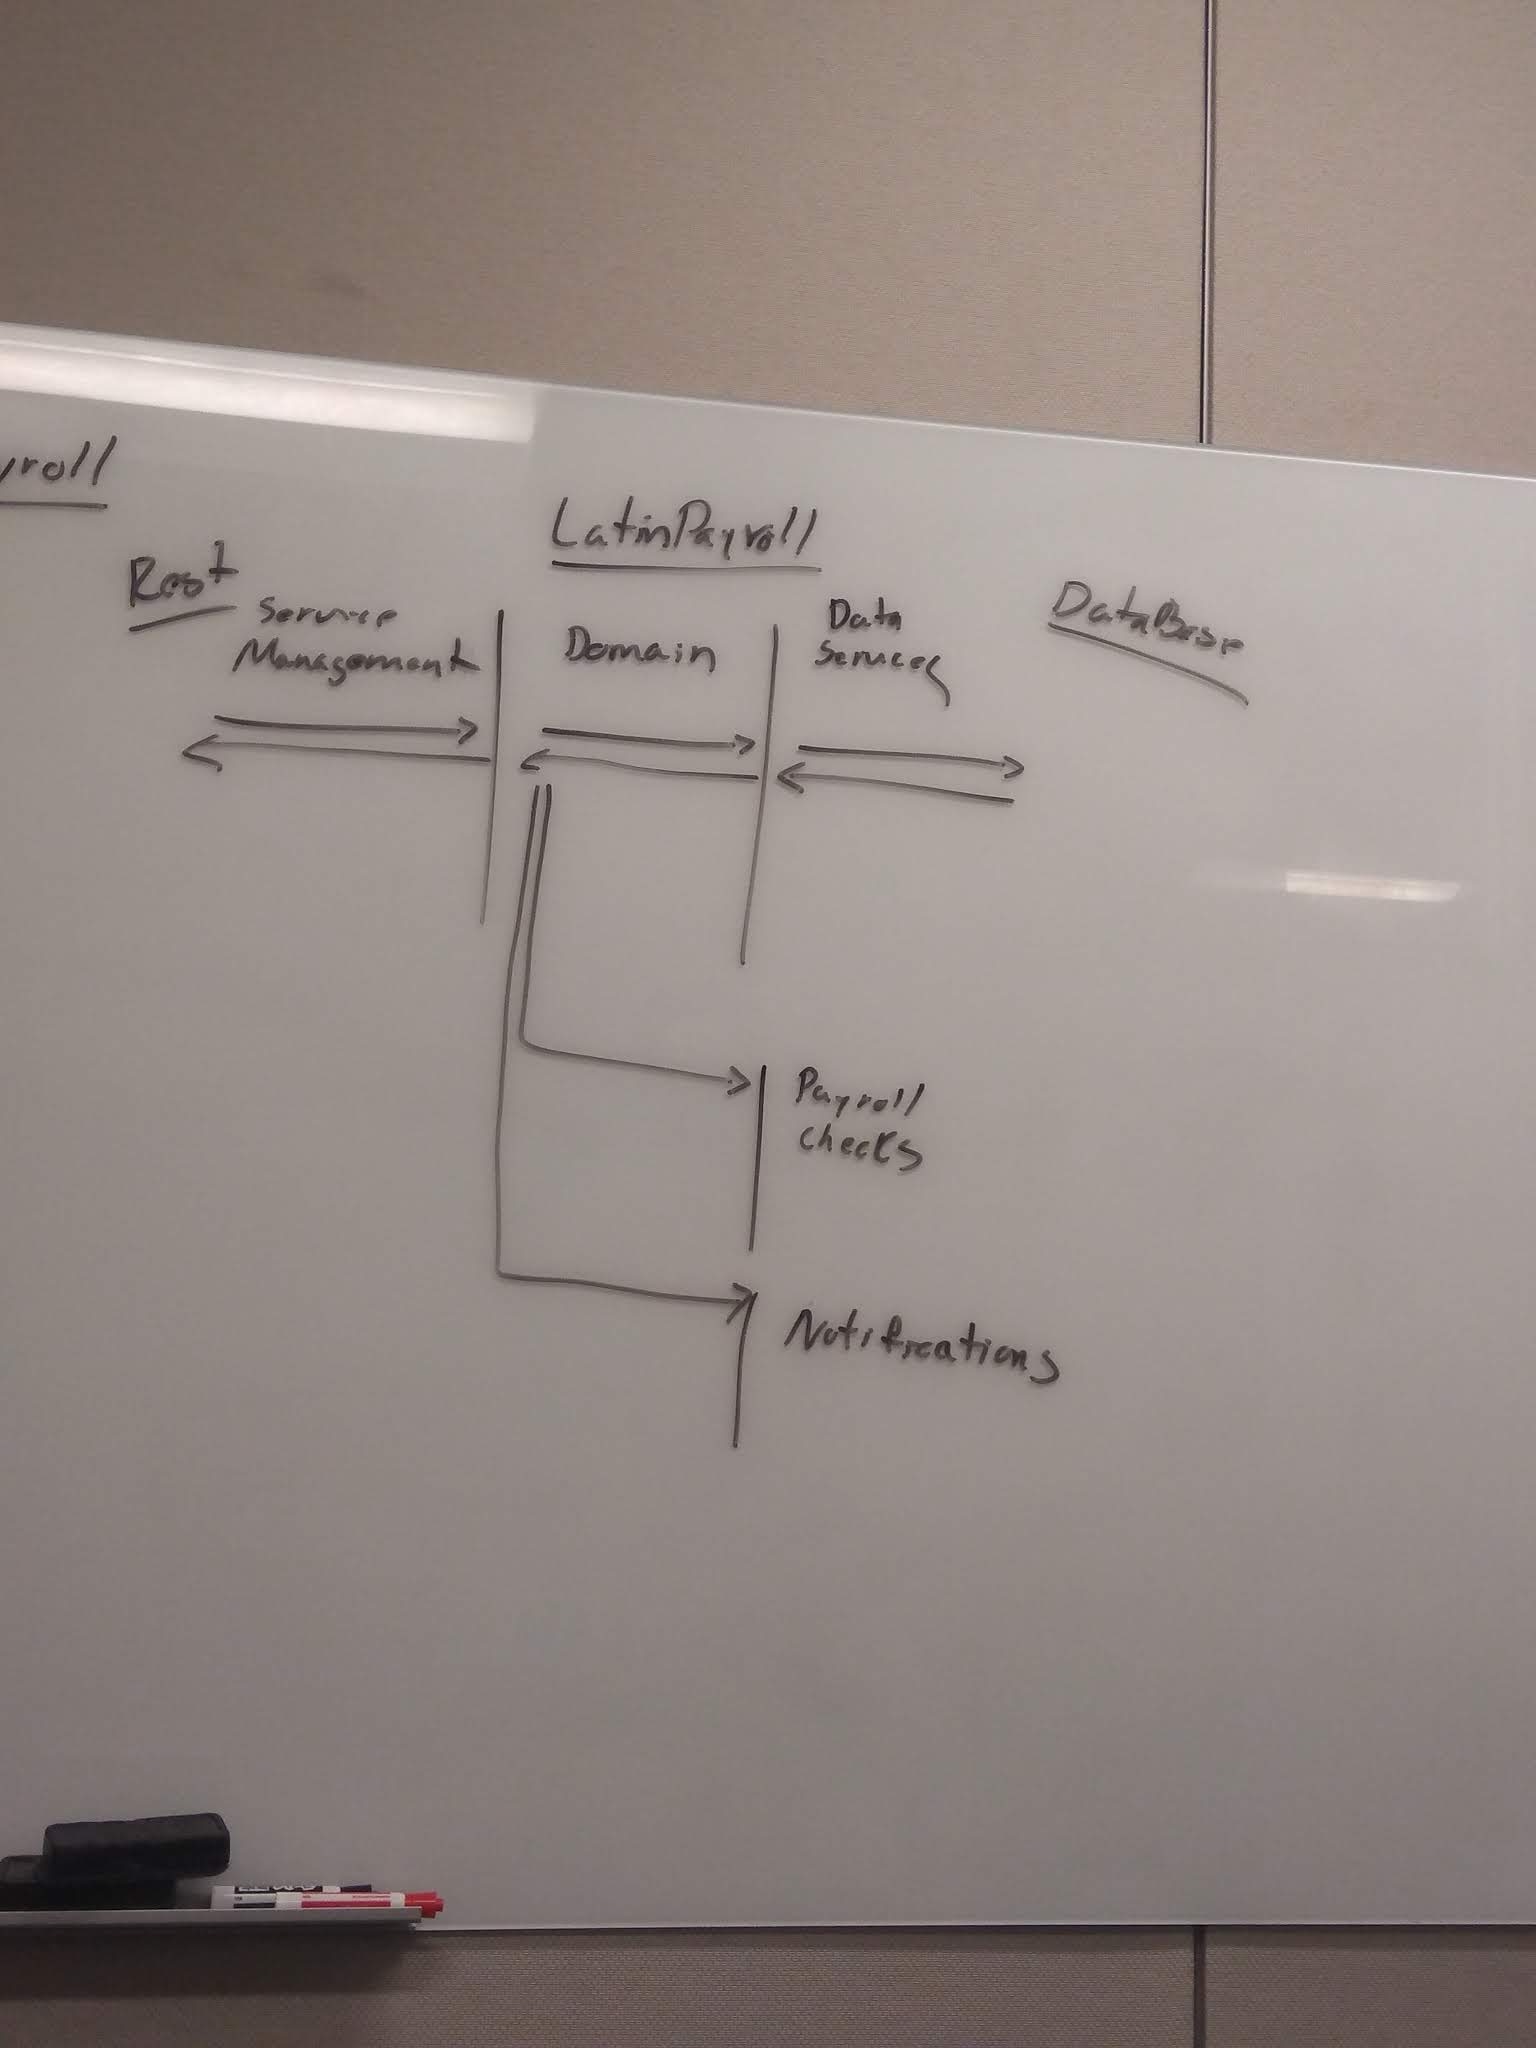 yroll
LatinPayroll
Rest
Service
Management
Domain
Data
Services
DataBase
Payroll
checks
Notifications